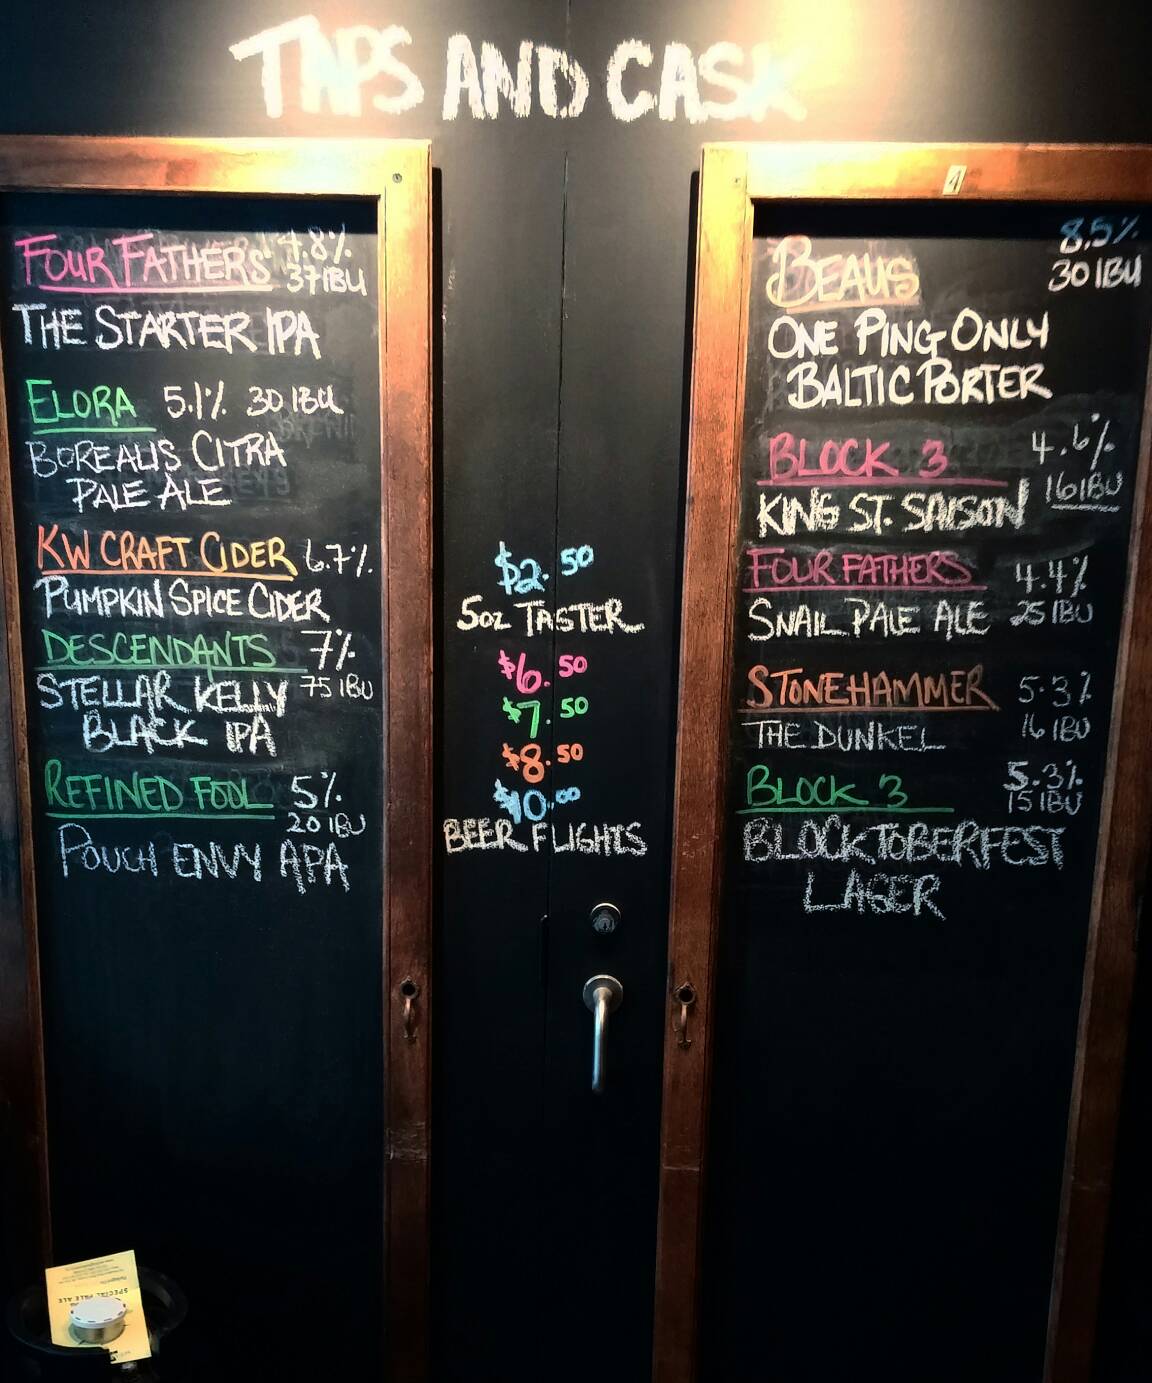 TAPS AND CASK
FOUR FATHERS 4.8%
37 IBU
THE STARTER IPA
ELORA 5.1% 30 IBU
BOREALIS CITRA
PALE ALE
KW CRAFT CIDER 6.7%
PUMPKIN SPICE CIDER
DESCENDANTS 7%
75 IBU
STELLAR KELLY
BLACK IPA
REFINED FOOL 5%
20 IBU
POUCH ENVY APA
$2.50
5oz TASTER
$6.50
$7.50
$8.50
$10.00
BEER FLIGHTS
1
8.5%
BEAUS 30 IBU
ONE PING ONLY
BALTIC PORTER
BLOCK 3 4.6%
16 IBU
KING ST. SAISON
FOUR FATHERS 4.4%
SNAIL PALE ALE 25 IBU
STONEHAMMER 5.3%
THE DUNKEL 16 IBU
BLOCK 3 5.3%
15 IBU
BLOCKTOBERFEST
LAGER
SPECIAL PALE ALE